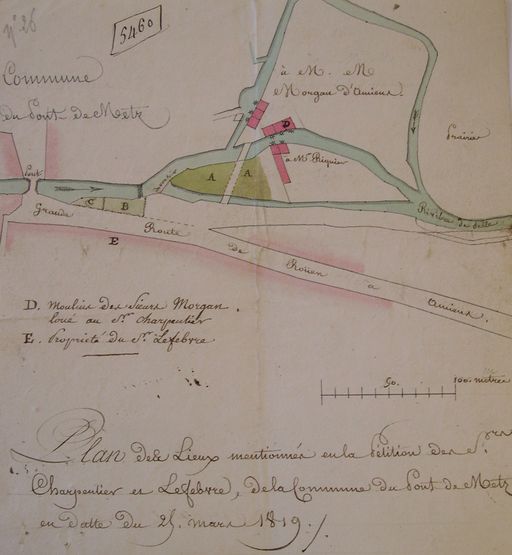 n° 26
5460
Commune
du Pont de Metz
à M. M
Morgan d'Amiens.
Prairie
D
à Mr Riquier
A
A
Pont
C
B
Rivière de Selle
Grande
Route
de
Rouen
à
Amiens.
E
D. Moulins des Sieurs Morgan.
loué au Sr. Charpentier
E. Propriété du Sr. Lefebvre
50.
100. mètres
Plan des Lieux mentionnés en la Pétition des Srs
Charpentier et Lefebvre, de la Commune du Pont de Metz
en datte du 25. mars 1819./.